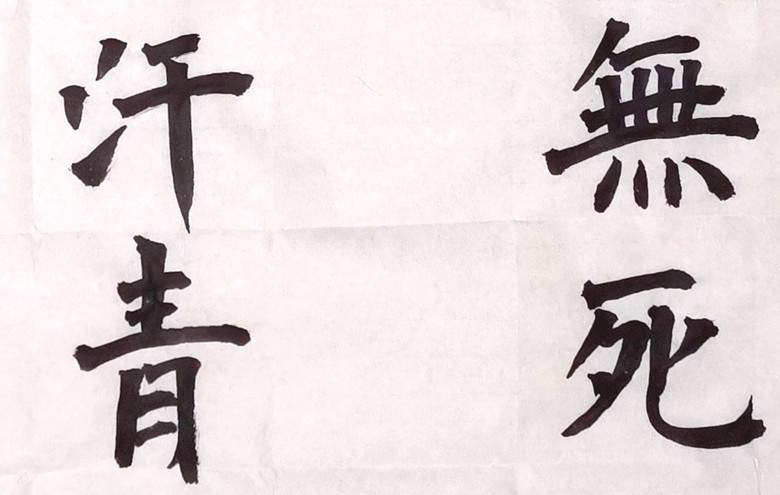 無死
汗青